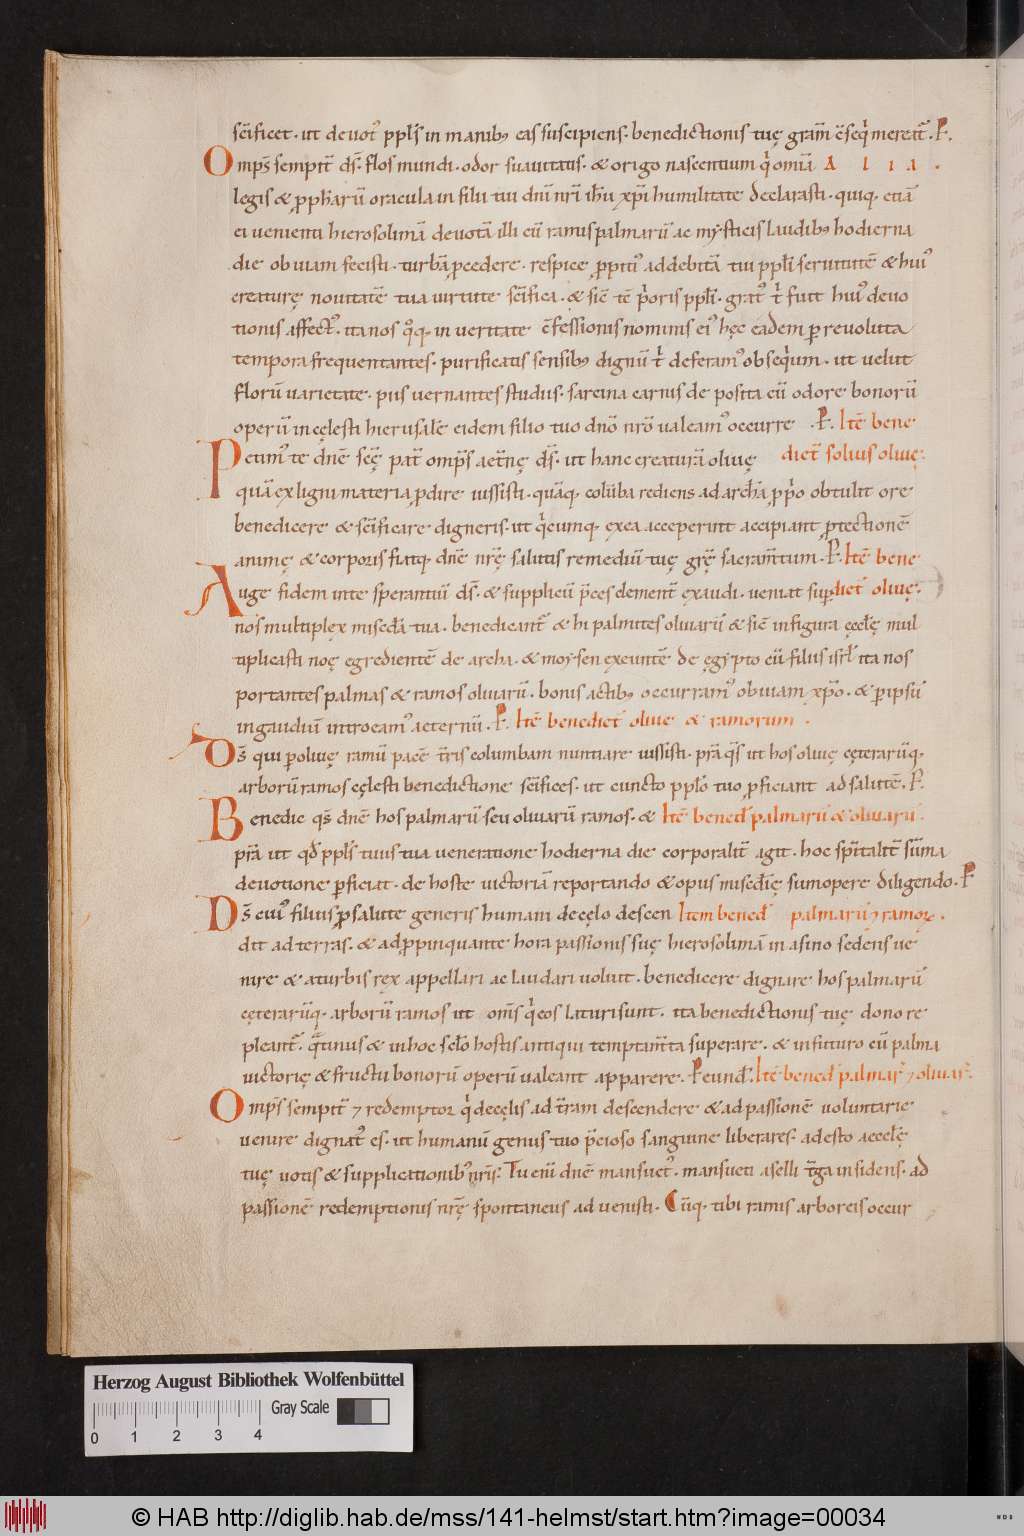 scificet. ut devot' ppl's in manib; eas suscipiens. benedictionis tuę gram c̄seq̇ mereat̄. P.
Omps sempit̄ ds̄. flos mundi. odor suavitatis. & origo nascentium q̇ omiā Alia.
legis & ꝓphārū oracula in filii tui dnī nrī ihū xpī humilitate declarasti. quiq; etiā
ei venienti hierosolimā devotā illi cū ramis palmarū ac mysticis laudib; hodierna
die obviam fecisti. turbā ꝓcedere. respice ꝓpiti' ad debitā tui ppli servitutē & hui'
creaturę novitatē tua virtute scifica. & sic tē p̄oris ppli. grat' t̄ fuit hui' devo
tionis affect'. ita nos q̊q; in veritate c̄fessionis nominis ei' hęc eadem ꝑ revoluta
tempora frequentantes. purificatis sensib; dignū t̄ deferam' obseq̇um. ut velut
florū varietate. piis vernantes studiis. sarcina carnis deposita cū odore bonorū
operū in cęlesti hierusalē eidem filio tuo dnō nrō valeam' occurre .P. Itē bene
Petim' te dnē scę pat̄ omps aetnę ds̄. ut hanc creaturā olivę dict̄ solius olivę.
quā ex ligni materia ꝓdire iussisti. quāq; colūba rediens ad archā ꝓpo obtulit ore
benedicere & scificare digneris. ut q̇cumq; ex ea acceperint accipiant ꝓtectionē
animę & corporis fiatq; dnē nrę salutis remediū tuę grę sacram̄tum. P. Itē bene
Auge fidem in te sperantiū ds̄. & supplicū p̄ces clement̄ exaudi. veniat sup dict̄ olivę.
nos multiplex misedā tua. benedicant̄ & hi palmites olivarū & sic in figura ęcclę mul
tiplicasti noę egredientē de archa. & moysen exeuntē de ęgypto cū filiis isrl ita nos
portantes palmas & ramos olivarū. bonis actib; occurram' obviam xpo. & ꝑ ipsū
in gaudiū introeam' aeternū. P. Itē benedict̄ olive & ramorum.
Ds̄ qui ꝑ olivę ramū pacē tris columbam nuntiare iussisti. p̄ra q̄s ut hos olivę cęterarūq;
arborū ramos cęlesti benedictione scifices. ut cuncto pplo tuo ꝓficiant ad salutē. P.
Benedic qs̄ dnē hos palmarū seu olivarū ramos. & Itē bened palmarū & olivarū.
p̄ra ut qd ppl's tuus tua veneratione hodierna die corporalit̄ agit. hoc spitalit̄ sūma
devotione ꝑficiat. de hoste victoriā reportando & opus misedię sumopere diligendo. P.
Ds̄ cui' filius ꝓ salute generis humani de cęlo descen Item bened palmarū ⁊ ramoꝝ.
dit ad terras. & adꝓpinquante hora passionis suę hierosolimā in asino sedens ve
nire & a turbis rex appellari ac laudari voluit. benedicere dignare hos palmarū
cęterarūq; arborū ramos ut om̄s q̇ eos laturi sunt. ita benedictionis tuę dono re
pleant̄. q̄tinus & in hoc sclo hostis antiqui temptam̄ta superare. & in futuro cū palma
victorię & fructu bonorū operū valeant apparere. P eund. Itē bened palmar' ⁊ olivar'.
Omps sempit̄ ⁊ redemptor q̇ de cęlis ad t̄ram descendere & ad passionē voluntarie
venire dignat' es. ut humanū genus tuo p̄cioso sanguine liberares. adesto aeccłę
tuę votis & supplicationib' nris. Tu enī dnē mansuet'. mansueti aselli t̄ga insidens. ad
passionē redemptionis nrę spontaneus advenisti. Cūq; tibi ramis arboreis occur
Herzog August Bibliothek Wolfenbüttel
Gray Scale
0 1 2 3 4
© HAB http://diglib.hab.de/mss/141-helmst/start.htm?image=00034